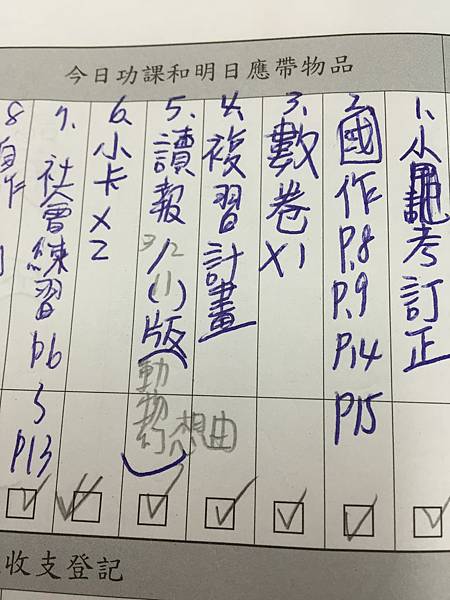 今日功課和明日應帶物品
1、小考訂正
2、國作P.8 P.9 P.14 P15
3、數卷X1
4、複習計畫
5、讀報3/2 1/(1)版(動物幻想曲)
6、小卡X2
7、社會練習P6 5 P13
8、
收支登記